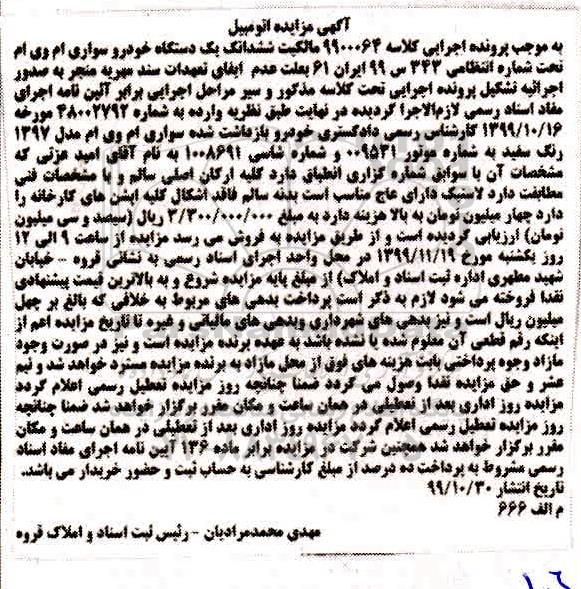 آگهی مزایده اتومبیل
به موجب پرونده اجرایی کلاسه ۹۹۰۰۰۶۴ مالکیت ششدانگ یک دستگاه خودرو سواری ام وی ام
تحت شماره انتظامی ۳۴۳ س ۹۹ ایران ۶۱ بعلت عدم ایفای تعهدات سند مهریه منجر به صدور
اجرائیه تشکیل پرونده اجرایی تحت کلاسه مذکور و سیر مراحل اجرایی برابر آئین نامه اجرای
مفاد اسناد رسمی لازم‌الاجرا گردیده در نهایت طبق نظریه وارده به شماره ۴۸۰۰۲۷۹۲ مورخه
۱۳۹۹/۱۰/۱۶ کارشناس رسمی دادگستری خودرو بازداشت شده سواری ام وی ام مدل ۱۳۹۷
رنگ سفید به شماره موتور ۰۰۹۵۳۱ و شماره شاسی ۱۰۰۸۶۹۱ به نام آقای امید عزتی که
مشخصات آن با سوابق شماره گزاری انطباق دارد کلیه ارکان اصلی سالم و با مشخصات فنی
مطابقت دارد لاستیک دارای عاج مناسب است بدنه سالم فاقد اشکال کلیه اپشن های کارخانه را
دارد چهار میلیون تومان به بالا هزینه دارد به مبلغ ۳/۳۰۰/۰۰۰/۰۰۰ ریال (سیصد و سی میلیون
تومان) ارزیابی گردیده است و از طریق مزایده به فروش می رسد مزایده از ساعت ۹ الی ۱۲
روز یکشنبه مورخ ۱۳۹۹/۱۱/۱۹ در محل واحد اجرای اسناد رسمی به نشانی قروه – خیابان
شهید مطهری اداره ثبت اسناد و املاک) از مبلغ پایه مزایده شروع و به بالاترین قیمت پیشنهادی
نقدا فروخته می شود لازم به ذکر است پرداخت بدهی های مربوط به خلافی که بالغ بر چهل
میلیون ریال است و نیز بدهی های شهرداری وبدهی های مالیاتی و غیره تا تاریخ مزایده اعم از
اینکه رقم قطعی آن معلوم شده یا نشده باشد به عهده برنده مزایده است و نیز در صورت وجود
مازاد وجوه پرداختی بابت هزینه های فوق از محل مازاد به برنده مزایده مسترد خواهد شد و نیم
عشر و حق مزایده نقدا وصول می گردد ضمنا چنانچه روز مزایده تعطیل رسمی اعلام گردد
مزایده روز اداری بعد از تعطیلی در همان ساعت و مکان مقرر برگزار خواهد شد ضمنا چنانچه
روز مزایده تعطیل رسمی اعلام گردد مزایده روز اداری بعد از تعطیلی در همان ساعت و مکان
مقرر برگزار خواهد شد همچنین شرکت در مزایده برابر ماده ۱۳۶ آیین نامه اجرای مفاد اسناد
رسمی مشروط به پرداخت ده درصد از مبلغ کارشناسی به حساب ثبت و حضور خریدار می باشد.
تاریخ انتشار ۹۹/۱۰/۳۰
م الف ۶۶۶
مهدی محمدمرادیان – رئیس ثبت اسناد و املاک قروه